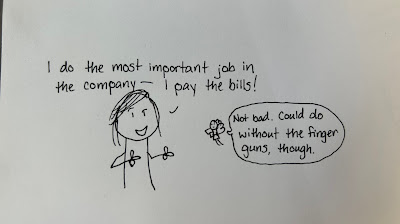 I do the most important job in
the company — I pay the bills!
Not bad. Could do
without the finger
guns, though.